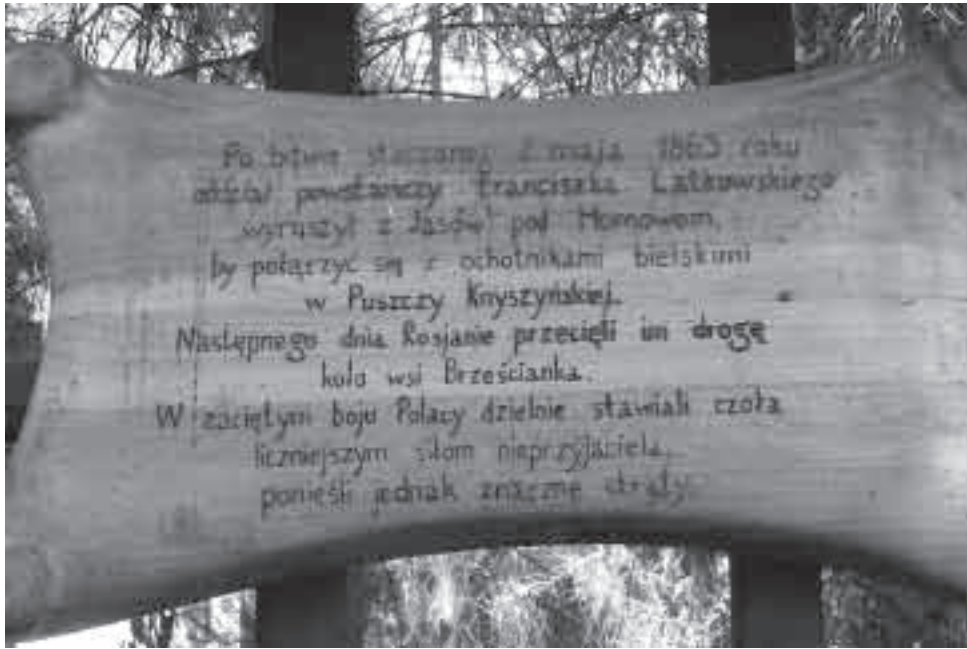 Po bitwie stoczonej 2 maja 1863 roku
oddział powstańczy Franciszka Latkowskiego
wyruszył z lasów pod Hornowem,
by połączyć się z ochotnikami bielskimi
w Puszczy Knyszyńskiej.
Następnego dnia Rosjanie przecięli im drogę
koło wsi Brześcianka.
W zaciętym boju Polacy dzielnie stawiali czoła
liczniejszym siłom nieprzyjaciela,
ponieśli jednak znaczne straty.